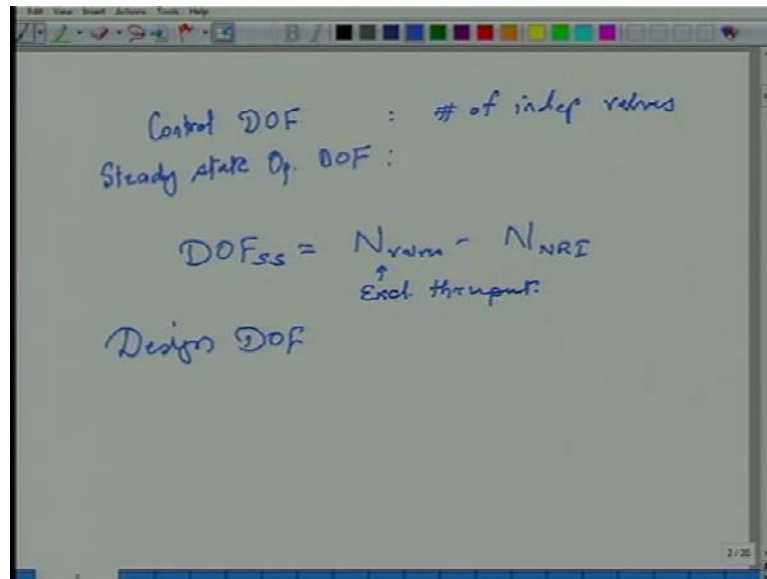 Edit View Insert Actions Tools Help
B I
Control DOF : # of indep valves
Steady state Op. DOF :
DOFss = Nvalves - NNRI
↑
Excl. thruput.
Design DOF
2/20
2